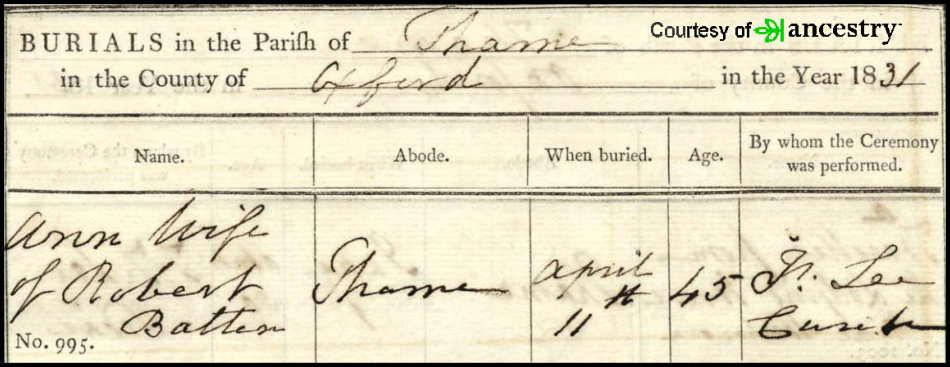 Courtesy of ancestry
BURIALS in the Parish of Thame
in the County of Oxford in the Year 1831
Name. Abode. When buried. Age. By whom the Ceremony
was performed.
Ann Wife
of Robert
Batten
Thame
April
11th
45
Lee
Curate
No. 995.